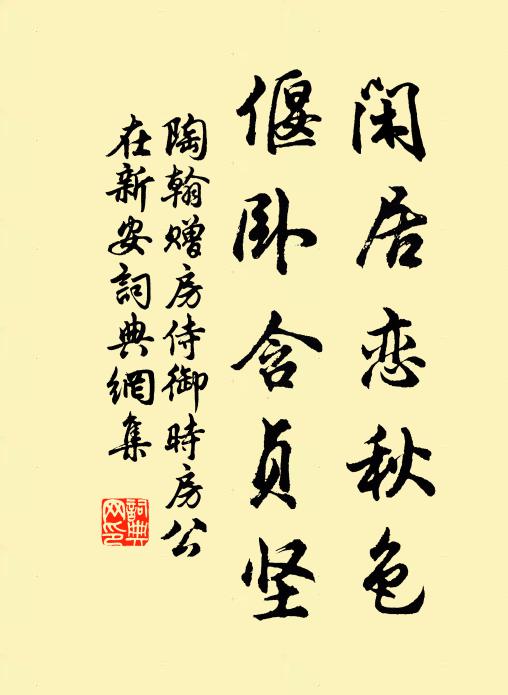 闲居恋秋色
偃卧含贞坚
陶翰赠房侍御时房公
在新安词典網集
詞典网印